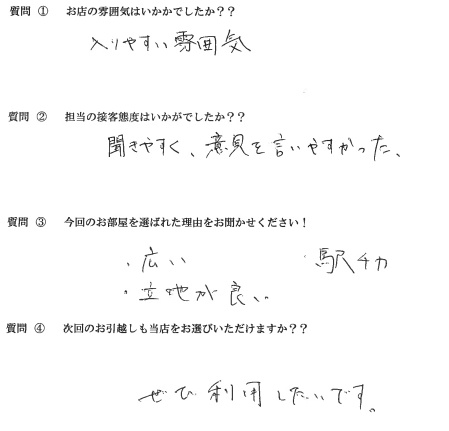 質問 ① お店の雰囲気はいかかでしたか？？
入りやすい雰囲気
質問 ② 担当の接客態度はいかがでしたか？？
聞きやすく、意見を言いやすかった、
質問 ③ 今回のお部屋を選ばれた理由をお聞かせください！
・広い 駅チカ
・立地が良い
質問 ④ 次回のお引越しも当店をお選びいただけますか？？
ぜひ利用したいです。